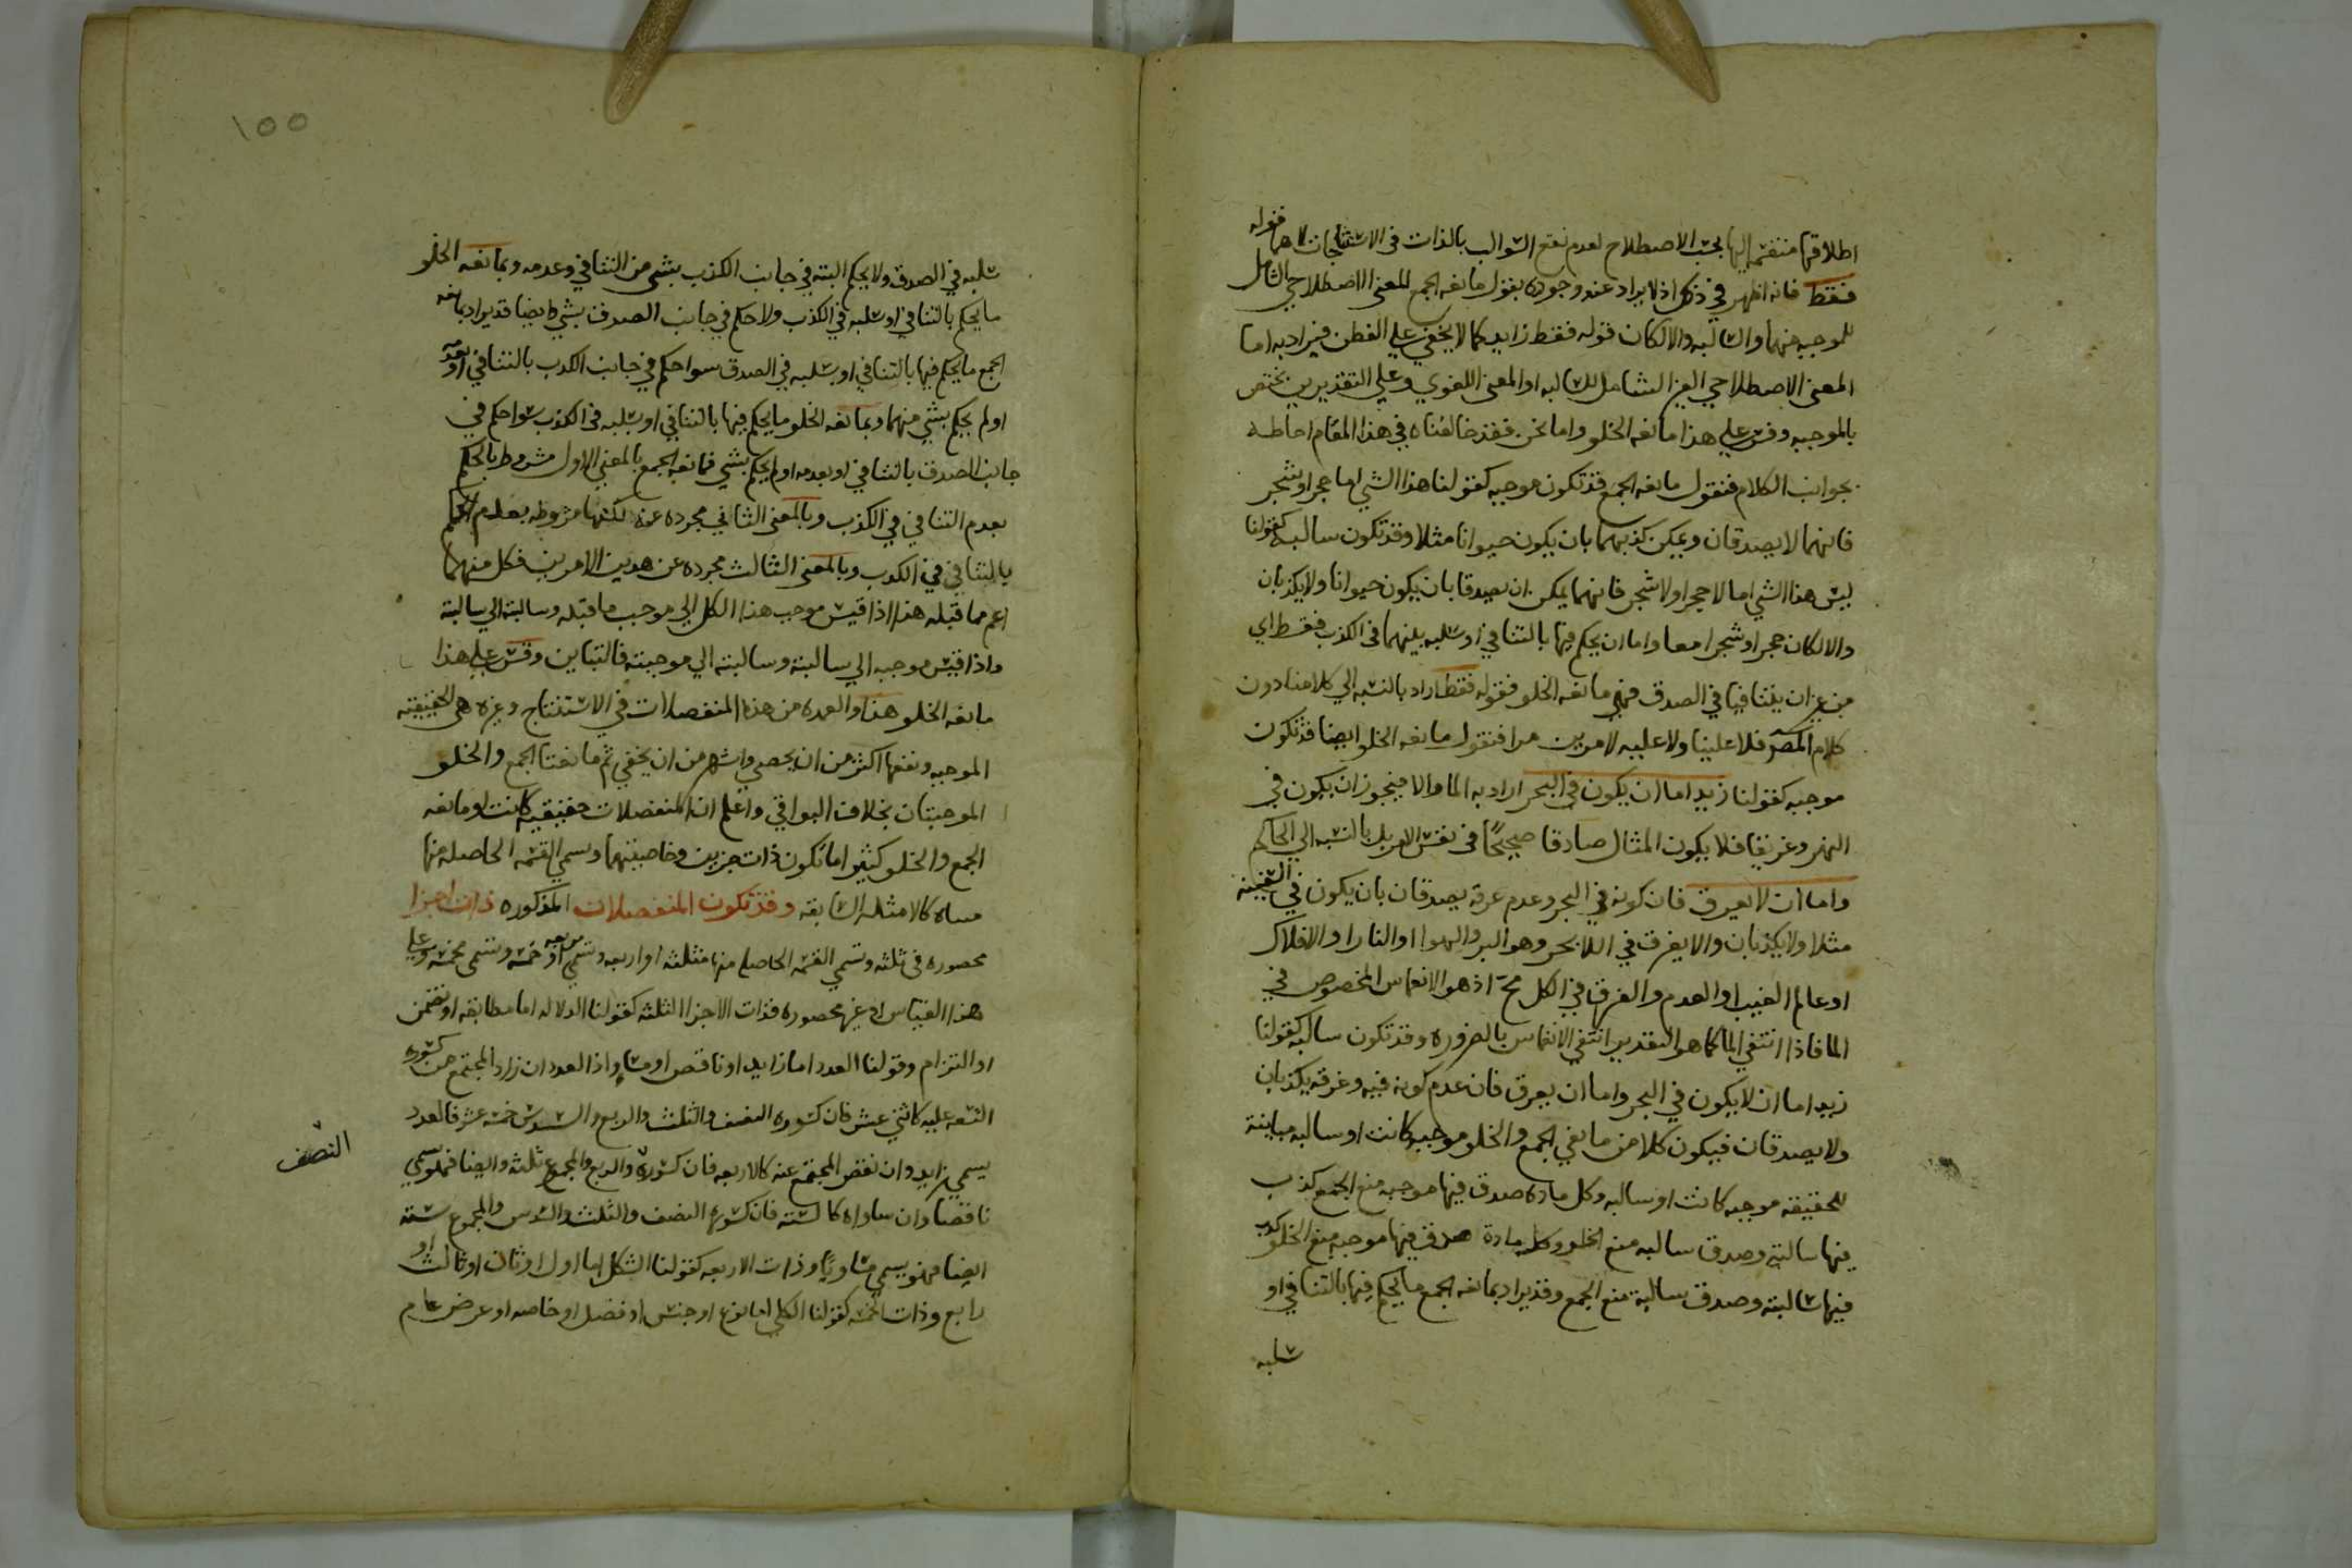 اطلاقها منقسمه اليها بحسب الاصطلاح لعدم نفع السوالب بالذات في الاستنتاجات لا هما فقوله
فقط فانه اظهر في ذلك اذ لا يراد عند وجوده بقول مانعه الجمع المعني الاصطلاحي الشامل
للموجبه منهما والسالبه والا لكان قوله فقط زايدا كما لا يخفي علي الفطن فيراد به اما
المعني الاصطلاحي الغير الشامل للسالبه او المعني اللغوي وعلي التقديرين يختص
بالموجبه وقس علي هذا مانعه الخلو واما نحن فقد خالفناه في هذا المقام احاطة
بجوانب الكلام فنقول مانعه الجمع قد تكون موجبه كقولنا هذا الشي اما حجر او شجر
فانهما لا يصدقان ويمكن كذبهما بان يكون حيوانا مثلا وقد تكون سالبه كقولنا
ليس هذا الشي اما لا حجر او لا شجر فانهما يمكن ان يصدقا بان يكون حيوانا ولا يكذبان
والا لكان حجرا وشجرا معا واما ان يحكم فيها بالتنافي او سلبه بينهما في الكذب فقط اي
من غير ان يتنافيا في الصدق فهي مانعه الخلو فقوله فقط اراد بالنسبه الي كلامنا دون
كلام المصر فلا علينا ولا عليه لامرين مرا فنقول مانعه الخلو ايضا قد تكون
موجبه كقولنا زيد اما ان يكون في البحر اراد به الما والا فيجوز ان يكون في
النهر وغريقا فلا يكون المثال صادقا صحيحًا في نفس الامر بل بالنسبه الي الحاكم
واما ان لا يغرق فان كونه في البحر وعدم غرقه يصدقان بان يكون في السفينه
مثلا ولا يكذبان والا يغرق في اللا بحر وهو البر والهوا او النار او الافلاك
او عالم الغيب او العدم والغرق في الكل مح اذ هو الانغماس المخصوص في
الما فاذا انتفي الما كما هو التقدير انتفي الانغماس بالضروره وقد تكون سالبه كقولنا
زيد اما ان لا يكون في البحر واما ان يغرق فان عدم كونه فيه وغرقه يكذبان
ولا يصدقان فيكون كلا من مانعي الجمع والخلو موجبه كانت او سالبه مباينة
للحقيقه موجبه كانت او سالبه وكل ماده صدق فيها موجبه منع الجمع كذب
فيها سالبته وصدق سالبه منع الخلو وكل مادة صدق فيها موجبه منع الخلو كذب
فيها سالبته وصدق سالبة منع الجمع وقد يراد بمانعه الجمع ما يحكم فيها بالتنافي او
سلبه
١٥٥
سلبه في الصدق ولا يحكم البته في جانب الكذب بشي من التنافي وعدمه وبمانعه الخلو
ما يحكم بالتنافي او سلبه في الكذب ولا حكم في جانب الصدق بشي وايضا قد يراد بمانعه
الجمع ما يحكم فيها بالتنافي او سلبه في الصدق سوا حكم في جانب الكذب بالتنافي او بعدمه
او لم يحكم بشي منهما وبمانعه الخلو ما يحكم فيها بالتنافي او سلبه في الكذب سوا حكم في
جانب الصدق بالتنافي او بعدمه او لم يحكم بشي فمانعه الجمع بالمعني الاول مشروط بالحكم
بعدم التنافي في الكذب وبالمعني الثاني مجرده عنه لكنها مشروطه بعدم الحكم
بالتنافي في الكذب وبالمعني الثالث مجرده عن هذين الامرين فكل منهما
اعم مما قبله هذا اذا قيس موجب هذا الكل الي موجب ما قبله وسالبته الي سالبة
واذا قيس موجبه الي سالبته وسالبته الي موجبته فالتباين وقس علي هذا
مانعه الخلو هذا والعمده من هذه المنفصلات في الاستنتاج وغيره هي الحقيقيه
الموجبه ونفعها اكثر من ان يحصي واشهر من ان يخفي ثم مانعتا الجمع والخلو
الموجبتان بخلاف البواقي واعلم ان المنفصلات حقيقيه كانت او مانعه
الجمع والخلو كثيرا ما تكون ذات جزين وخاصيتهما وتسمي القسمه الحاصله منها
مساه كالامثله السابقه وقد تكون المنفصلات المذكوره ذات اجزا
محصوره في ثلثه وتسمي القسمه الحاصله منها مثلثه او اربعه وتسمي مربعه او خمسه وتسمي مخمسه وعلي
هذا القياس او غير محصوره فذات الاجزا الثلثه كقولنا الدلاله اما مطابقه او تضمن
او التزام وقولنا العدد اما زايد او ناقص او مساو اذ العدد ان زاد المجتمع من كسوره
التسعه عليه كاثني عشر فان كسوره النصف والثلث والربع والسدس خمسه عشر فالعدد
يسمي زايدا وان نقص المجتمع عنه كالاربعه فان كسوره والربع والمجموع ثلثه وايضا فهو يسمي
النصف
ناقصا وان ساواه كالسته فان كسورها النصف والثلث والسدس والمجموع سته
ايضا فهو يسمي مساويًا وذات الاربعه كقولنا الشكل اما اول او ثان او ثالث او
رابع وذات الخمسه كقولنا الكلي اما نوع او جنس او فصل او خاصه او عرض عام